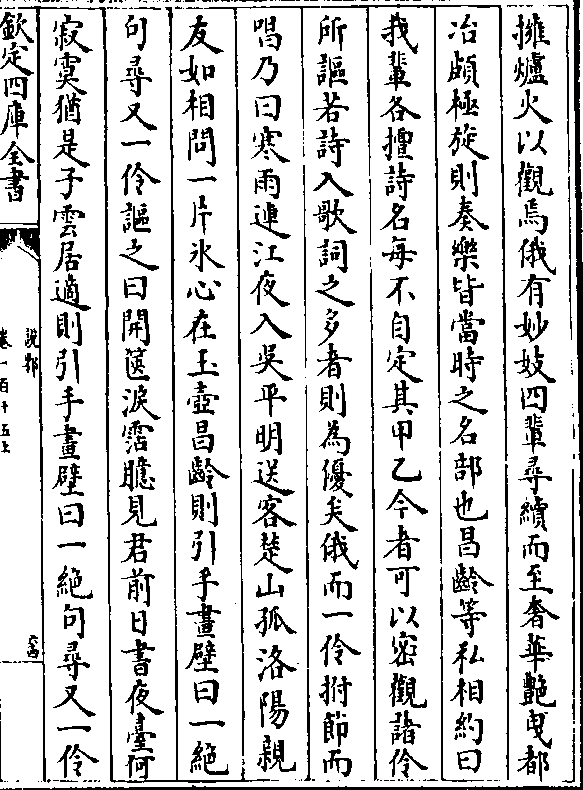 擁爐火以觀焉俄有妙妓四輩尋續而至奢華艷曳都
冶頗極旋則奏樂皆當時之名部也昌齡等私相約曰
我輩各擅詩名每不自定其甲乙今者可以密觀諸伶
所謳若詩入歌詞之多者則為優矣俄而一伶拊節而
唱乃曰寒雨連江夜入吳平明送客楚山孤洛陽親
友如相問一片氷心在玉壺昌齡則引手畫壁曰一絶
句尋又一伶謳之曰開篋淚霑臆見君前日書夜臺何
寂寞猶是子雲居適則引手畫壁曰一絶句尋又一伶
欽定四庫全書
說郛
卷一百十五上